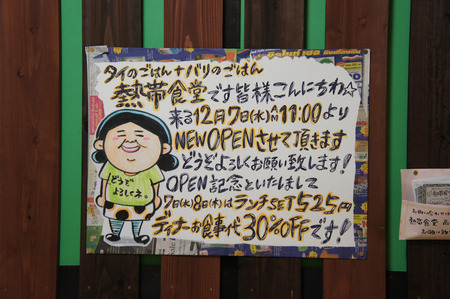 タイのごはん+バリのごはん
熱帯食堂です皆様こんにちわ☆
来る12月7日(水)AM11:00より
NEW OPENさせて頂きます
どうぞよろしくお願い致します!
OPEN記念といたしまして
7日(水)8日(木)はランチSET525円
ディナーお食事代30%OFFです!
どうぞ
よろしくネ。
熱帯食堂